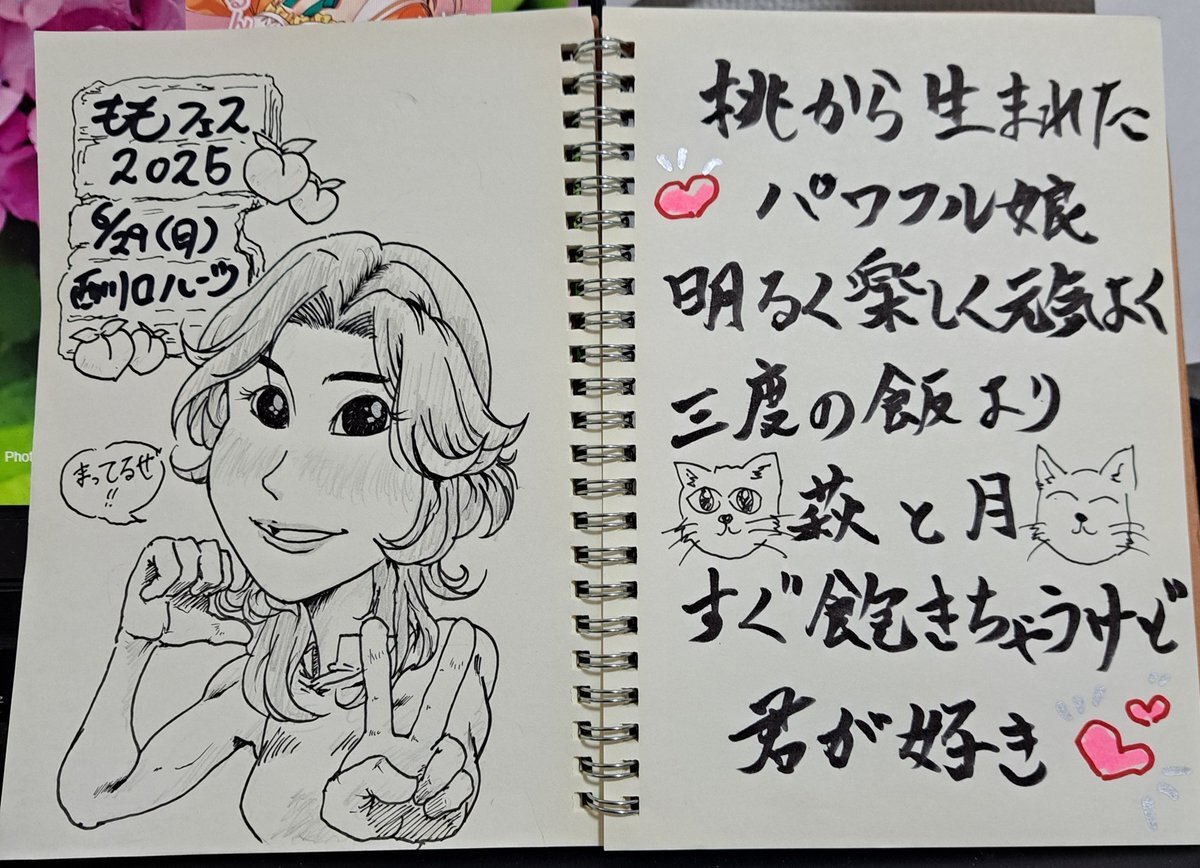 ももフェス
2025
6/29(日)
西川口ハーツ
まってるぜ
!!
桃から生まれた
パワフル娘
明るく楽しく元気よく
三度の飯より
萩と月
すぐ飽きちゃうけど
君が好き
Phot